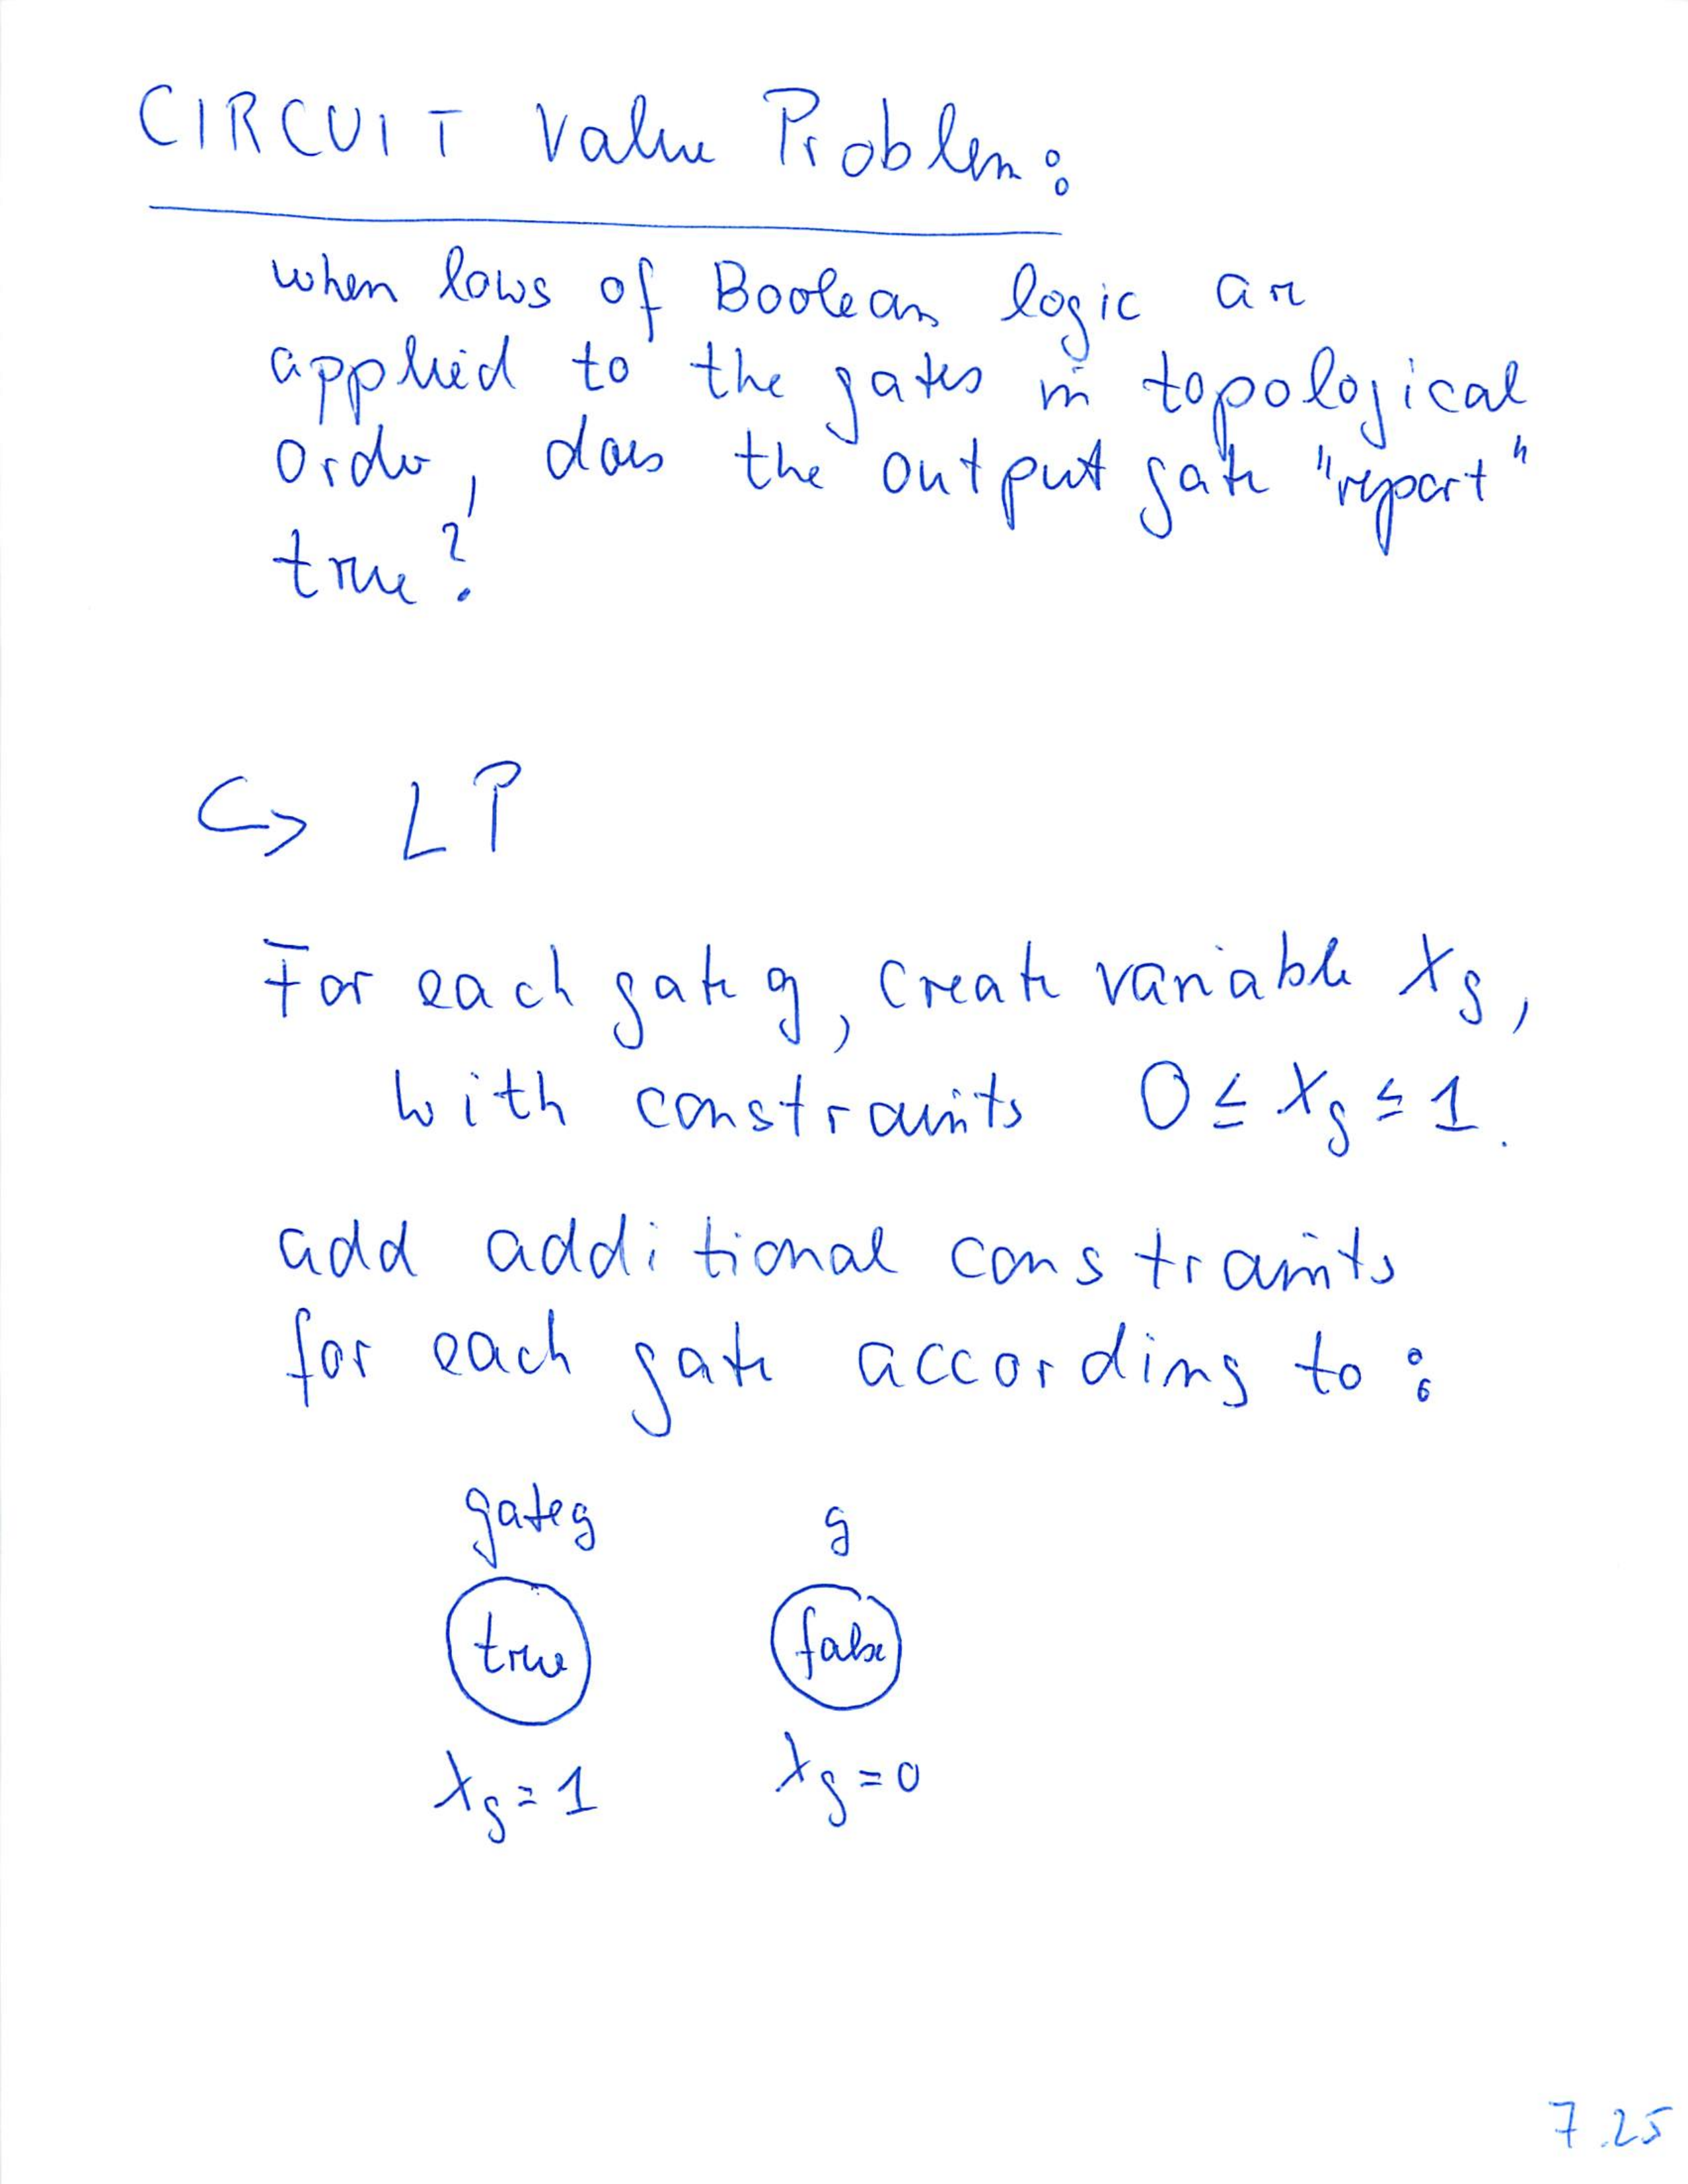 CIRCUIT Value Problem:
when laws of Boolean logic are
applied to the gates in topological
order, does the output gate "report"
true?
↪ LP
For each gate g, create variable Xg,
with constraints 0 ≤ Xg ≤ 1.
add additional constraints
for each gate according to:
gate g g
true false
Xg = 1 Xg = 0
7.25